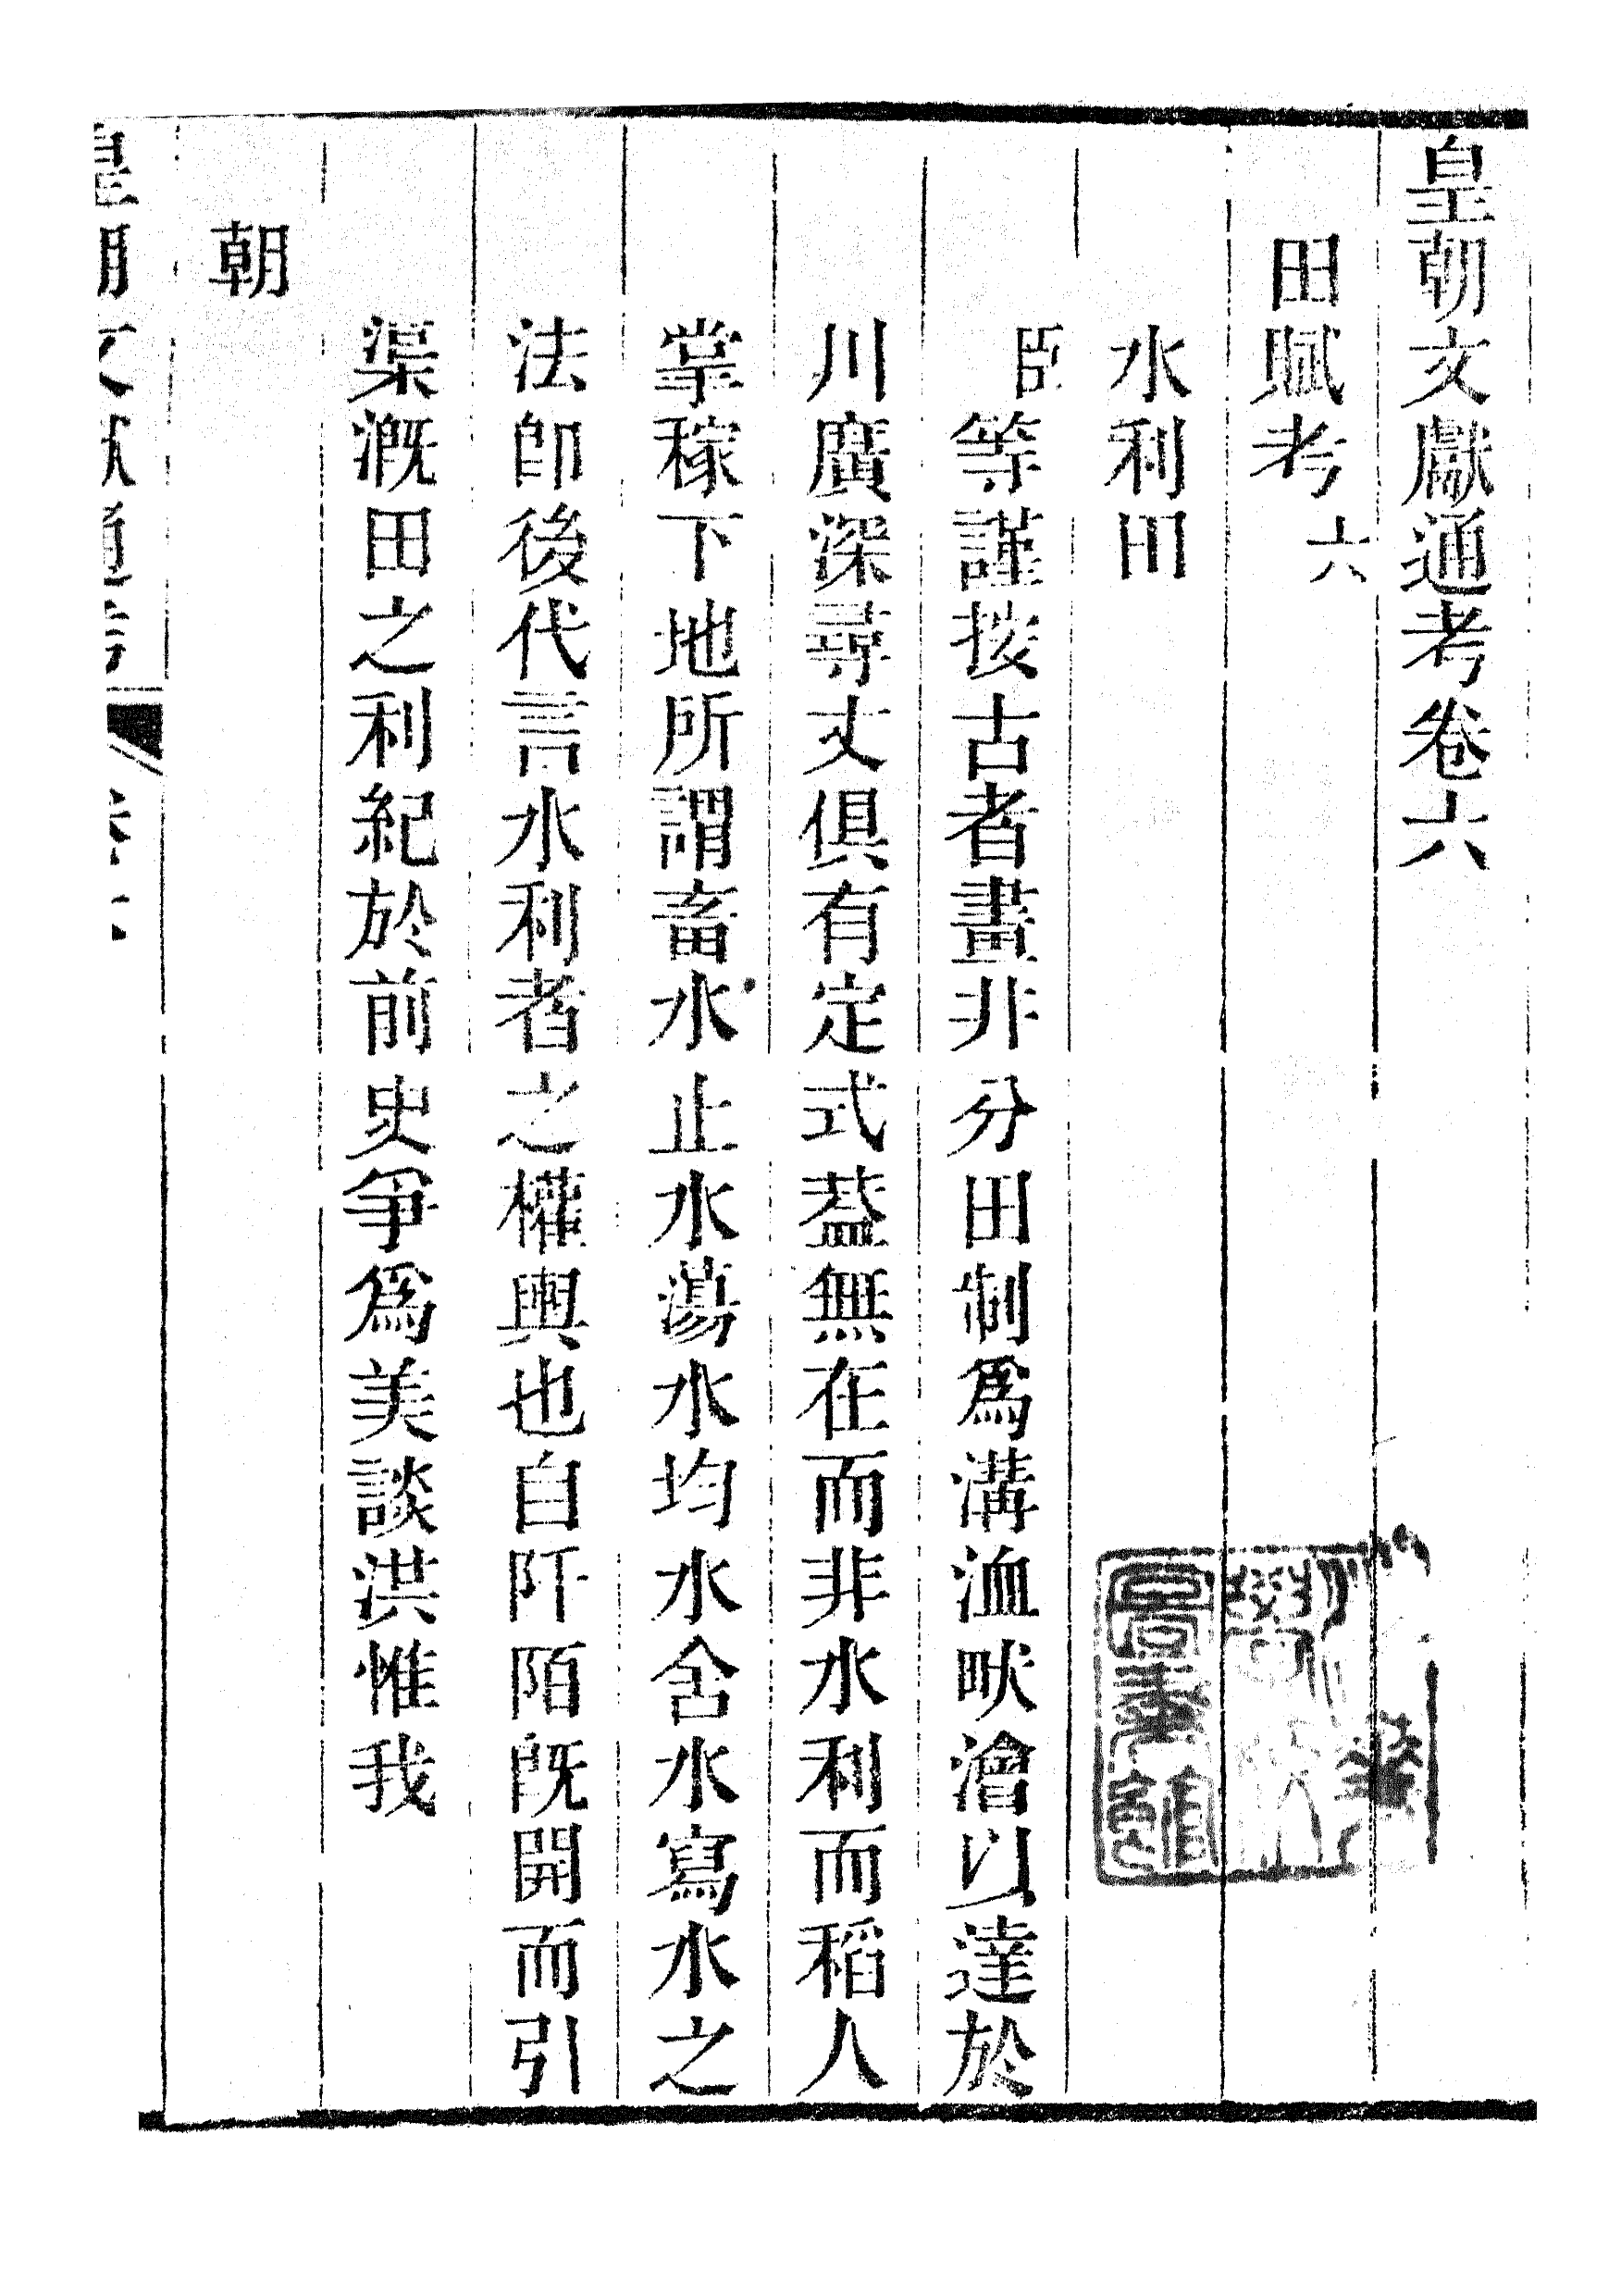 皇朝文獻通考卷六
田賦考六
水利田
臣等謹按古者畫井分田制爲溝洫畎澮以達於
川廣深尋丈俱有定式葢無在而非水利而稻人
掌稼下地所謂畜水止水蕩水均水舍水寫水之
法卽後代言水利者之權輿也自阡陌旣開而引
渠漑田之利紀於前史爭爲美談洪惟我
朝
皇朝文獻通考